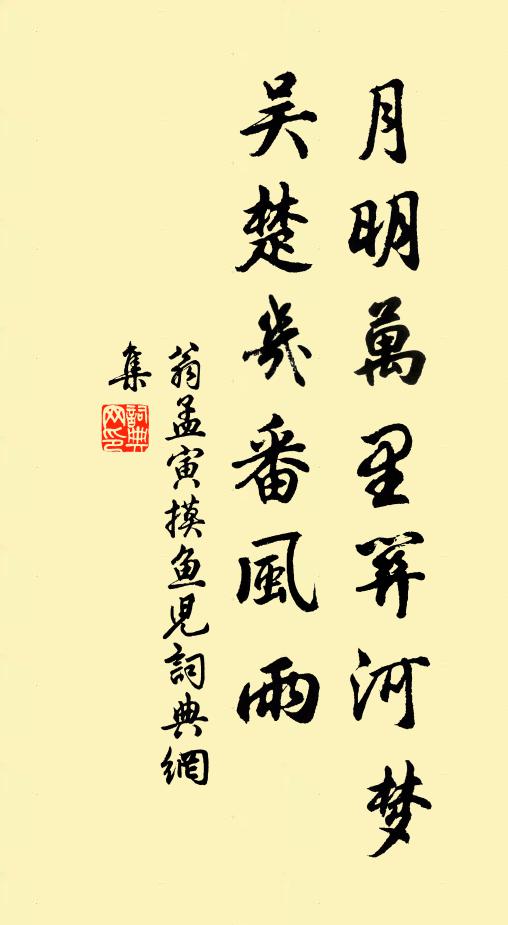 月明萬里關河梦
吴楚幾番風雨
翁孟寅摸鱼兒詞典網
集
詞典网印